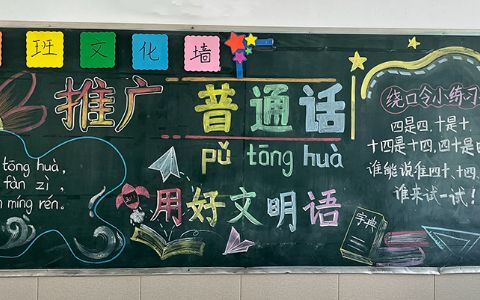 班文化墙
推广普通话
pǔ tōng huà
用好文明语
tōng huà,
fàn zì,
míng rén.
字典
绕口令小练习
四是四,十是十,
十四是十四,四十是
谁能说准四十、十四,
谁来试一试!